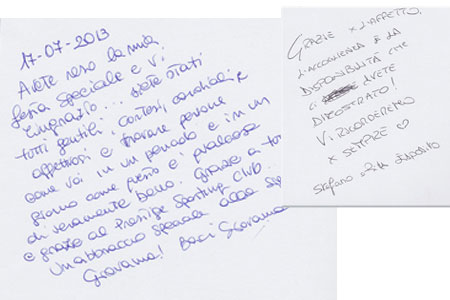 17-07-2013
Avete reso la mia
festa speciale e vi
ringrazio... siete stati
tutti gentili, cortesi, cordiali e
affettuosi e trovare persone
come voi in un periodo e in un
giorno come questo è qualcosa
di veramente bello. Grazie a tutti
e grazie al Prestige Sporting Club...
Un abbraccio speciale alla
Giovanna! Baci Giovanna
GRAZIE X L'AFFETTO,
L'ACCOGLIENZA E LA
DISPONIBILITÀ CHE
CI AVETE
DIMOSTRATO!
VI RICORDEREMO
X SEMPRE ♡
Stefano